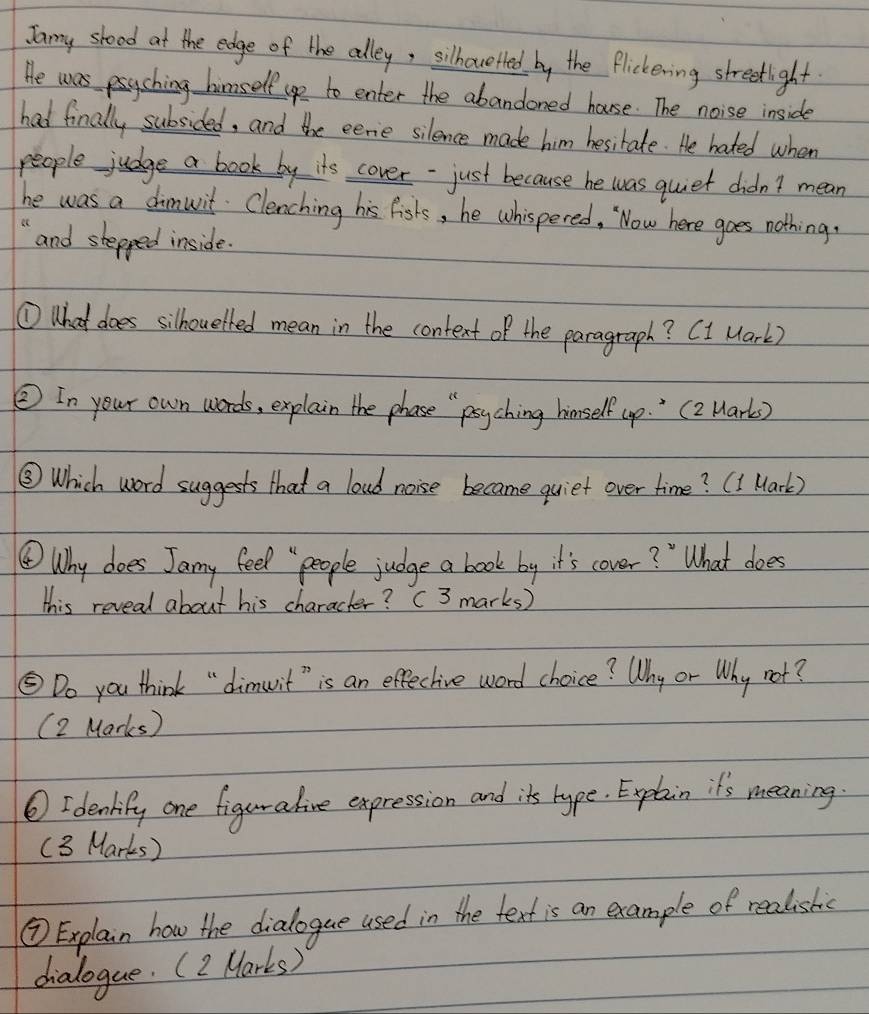 Jamy stood at the edge of the alley, silhouetted by the flickering streetlight.
He was psyching himself up to enter the abandoned house. The noise inside
had finally subsided, and the eerie silence made him hesitate. He hated when
people judge a book by its cover - just because he was quiet didn't mean
he was a dimwit. Clenching his fists, he whispered, "Now here goes nothing.
" and stepped inside.
① What does silhouetted mean in the context of the paragraph? (1 Mark)
② In your own words, explain the phase "psyching himself up." (2 Marks)
③ Which word suggests that a loud noise became quiet over time? (1 Mark)
④ Why does Jamy feel "people judge a book by it's cover?" What does
this reveal about his character? (3 marks)
⑤ Do you think "dimwit" is an effective word choice? Why or Why not?
(2 Marks)
⑥ Identify one figurative expression and its type. Explain it's meaning.
(3 Marks)
⑦ Explain how the dialogue used in the text is an example of realistic
dialogue. (2 Marks)